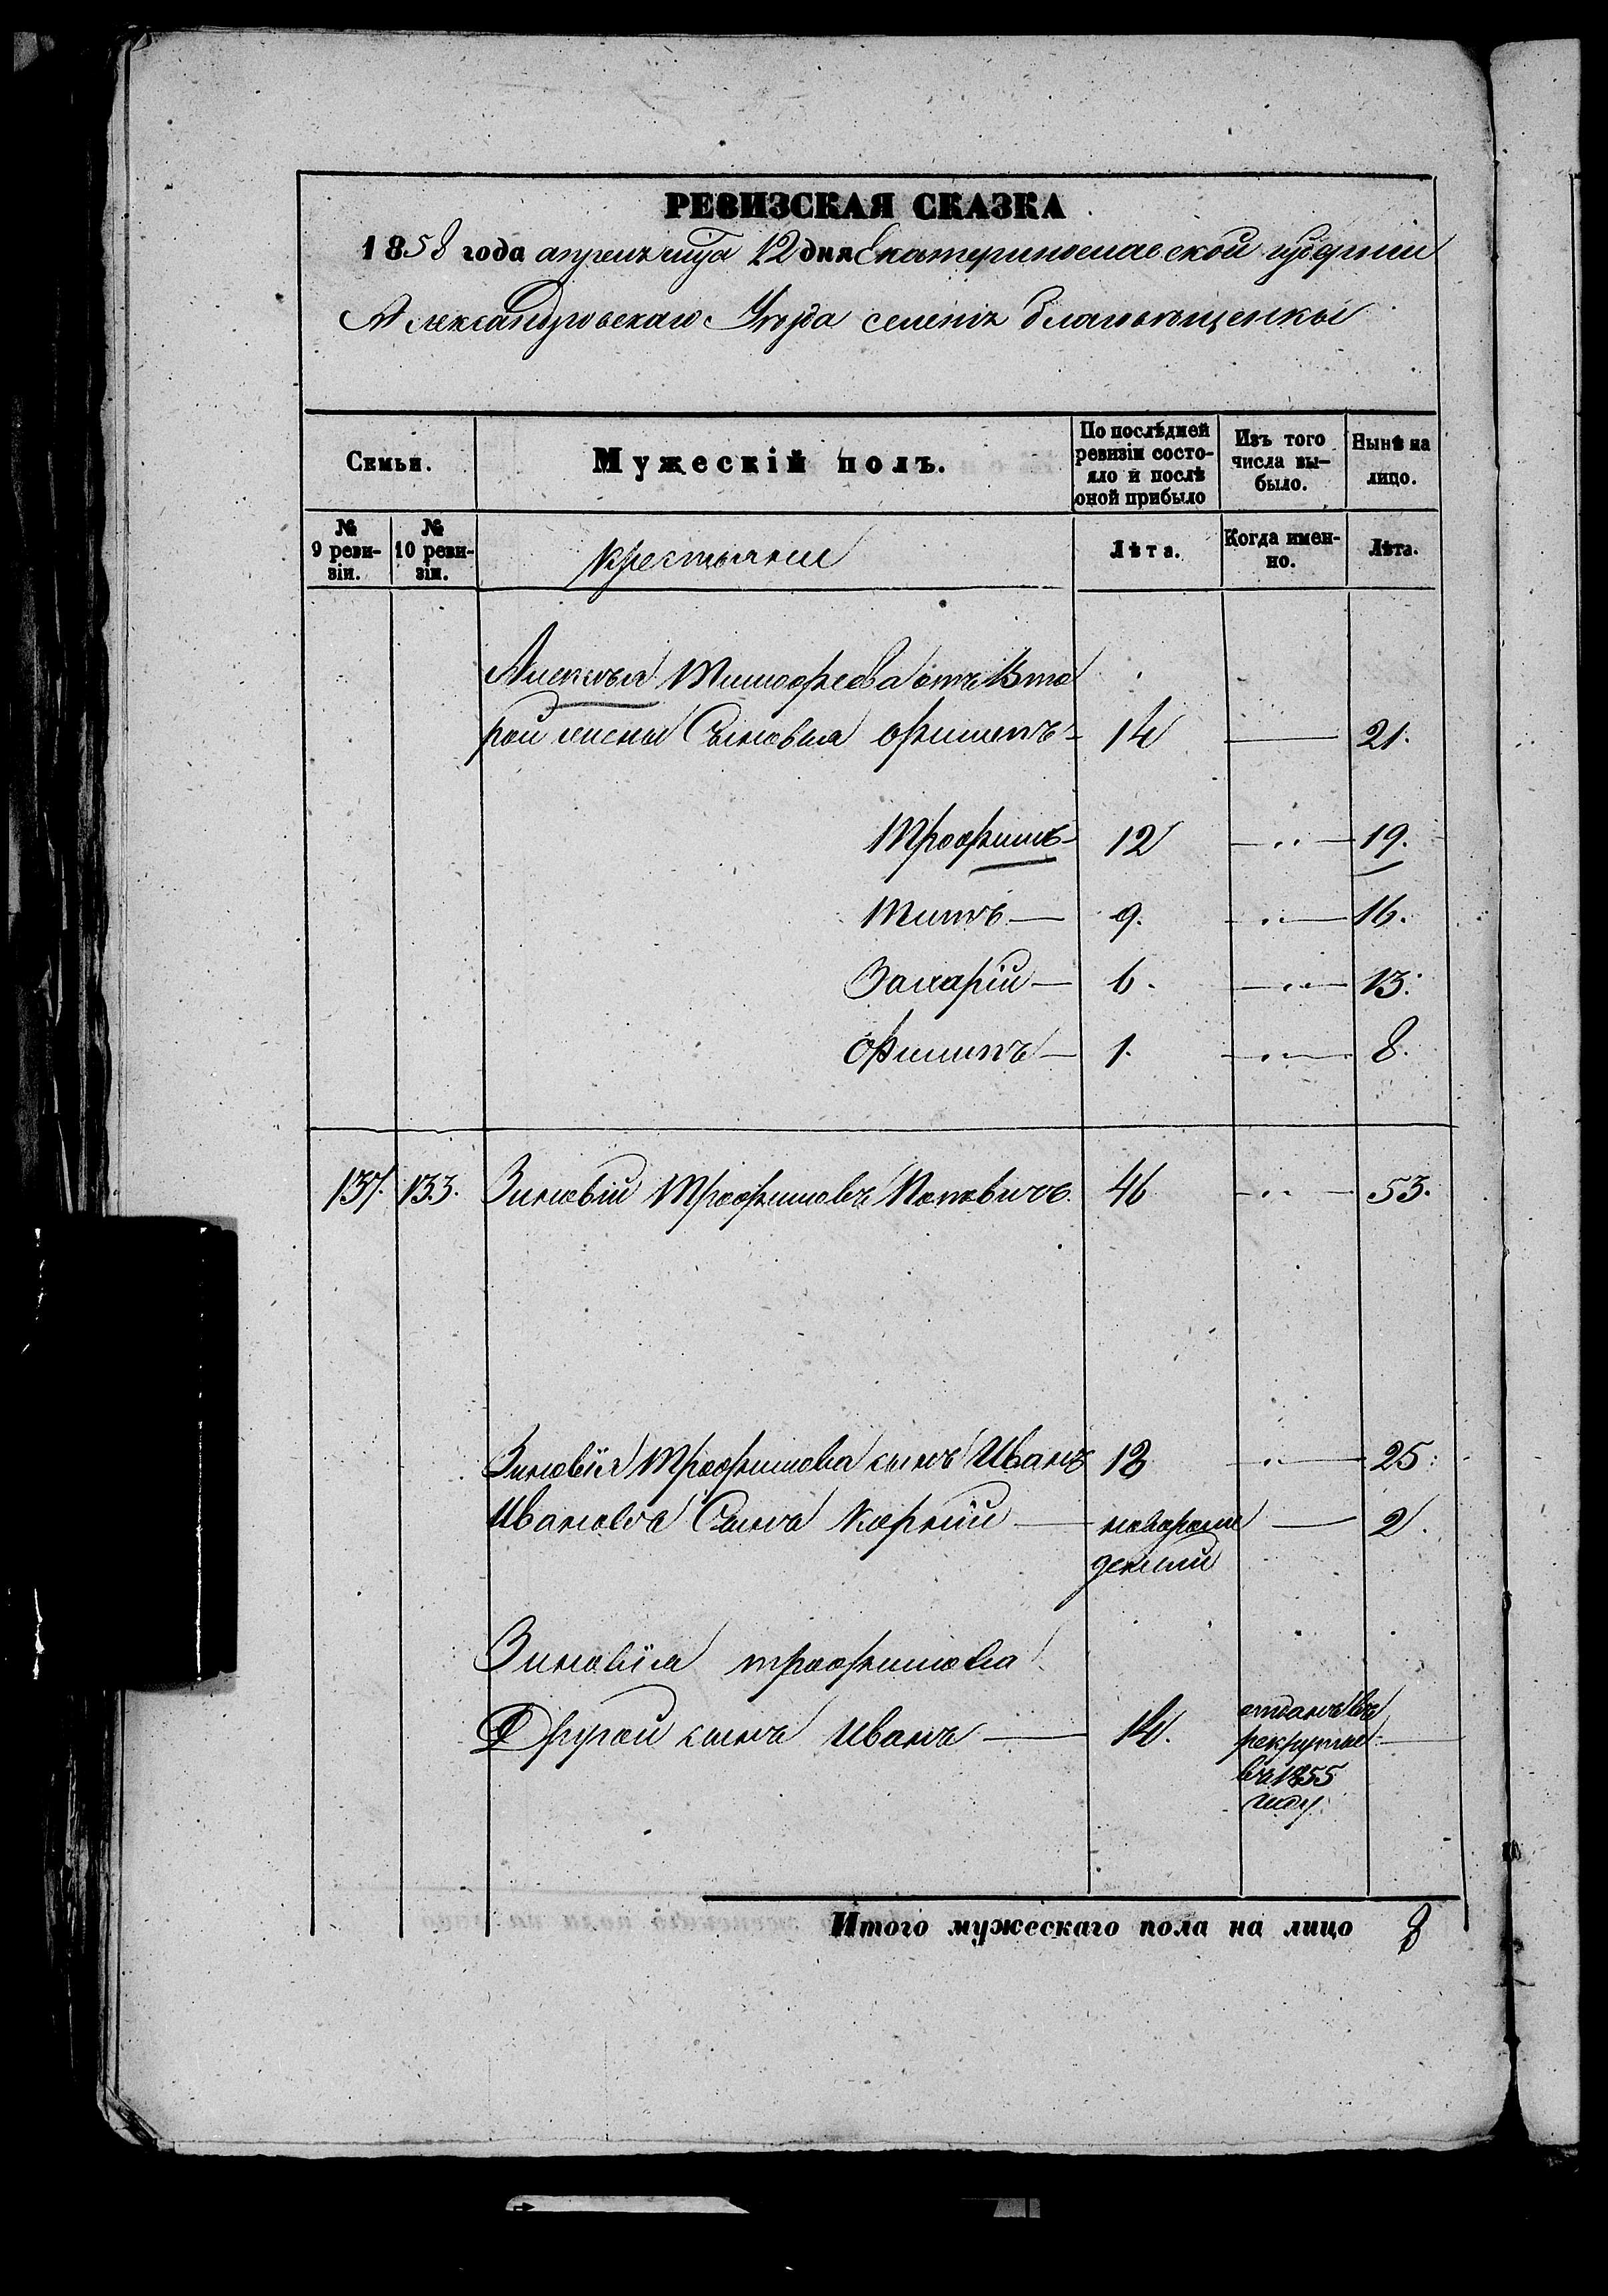 РЕВИЗСКАЯ СКАЗКА
1858 года апреля мца 12 дня Екатеринославской губернии
Александровскаго Уезда селенія Благовещенки
Семьи.
Мужескій полъ.
По послѣдней ревизіи состо-
яло и послѣ
оной прибыло
Изъ того
числа вы-
было.
Нынѣ на
лицо.
№
9 реви-
зіи.
№
10 реви-
зіи.
крестьяни
Лѣта.
Когда имен-
но.
Лѣта.
Алексея Тимофеева отъ Вто
рой жены Сыновья Филипъ 14 — 21.
Трофимъ 12 — 19.
Титъ — 9. — 16.
Захарій — 6. — 13.
Филипъ — 1. — 8.
137. 133. Зиновій Трофимовъ Поповичъ. 46 — 53.
Зиновія Трофимова сынъ Иванъ 18 — 25.
Иванова Сынъ Корнiй — новорож — 2.
денный
Зиновія трофимова
Другой сынъ Иванъ — 14. отданъ въ
рекруты —
въ 1855
году.
Итого мужескаго пола на лицо 8